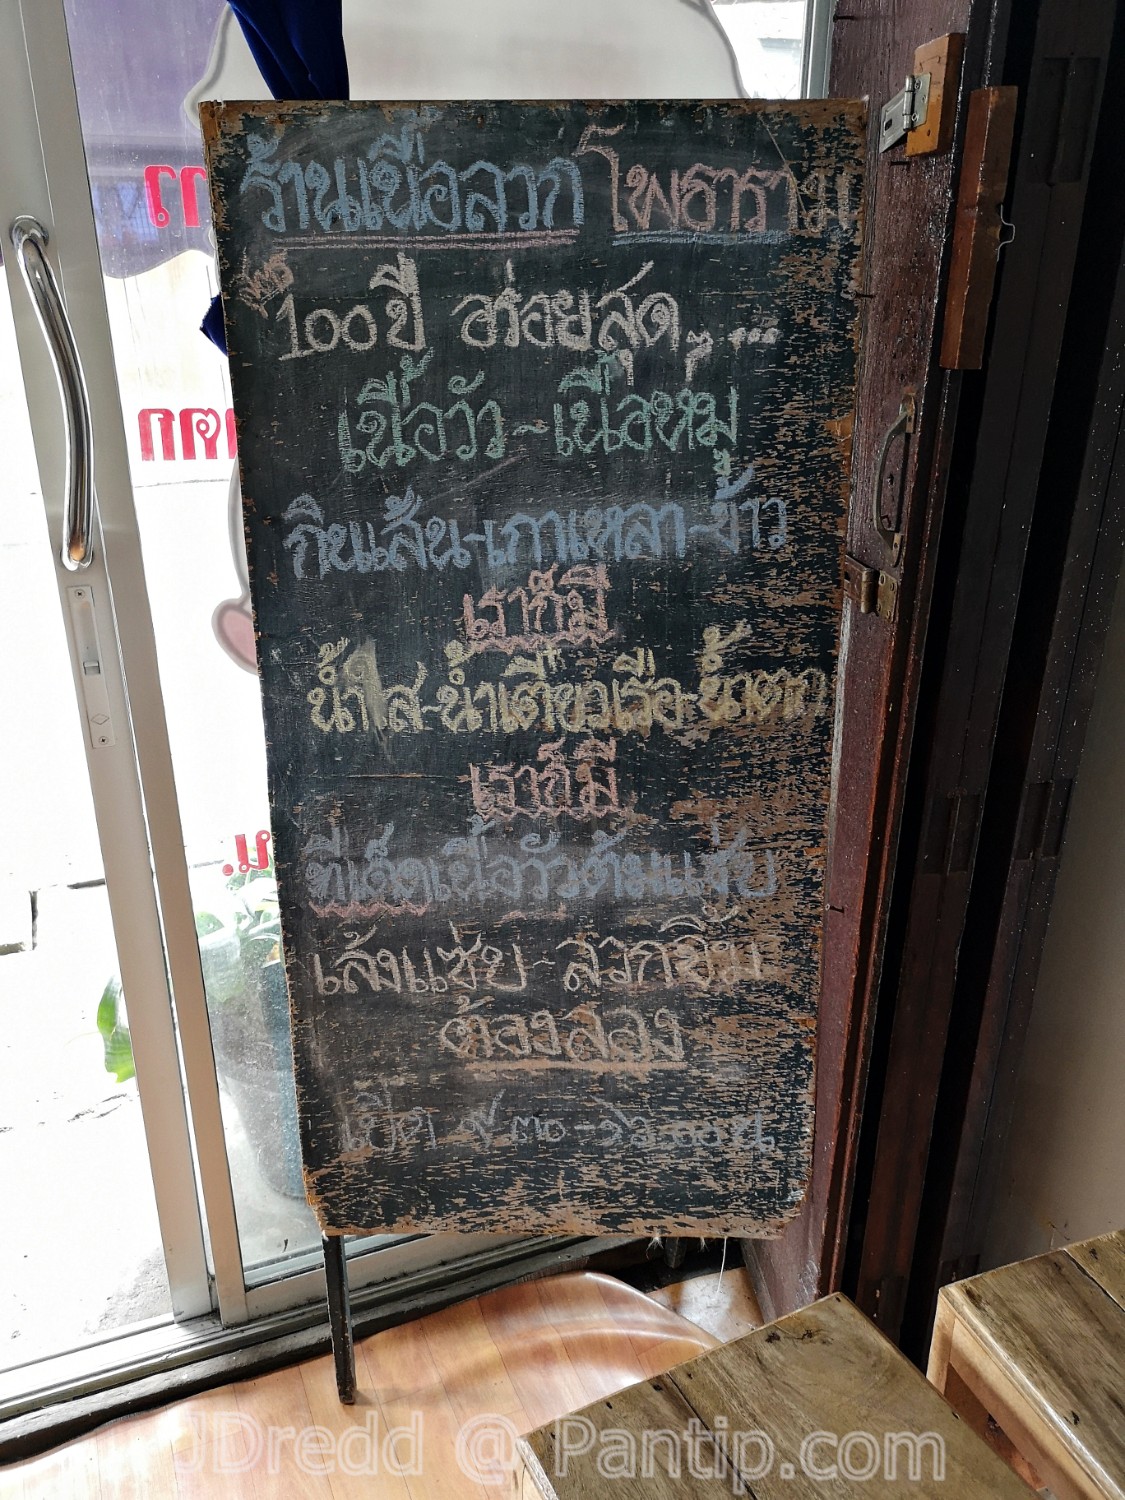 ร้านเนื้อลวก โพธาราม
100 ปี อร่อยสุดๆ....
เนื้อวัว - เนื้อหมู
กินเส้น-เกาเหลา-ข้าว
เราก็มี
น้ำใส-น้ำเตี๋ยวเรือ-น้ำตก
เราก็มี
ทีเด็ดเนื้อวัวต้มแซ่บ
เล้งแซ่บ - ลวกจิ้ม
ต้องลอง
JDredd @ Pantip.com